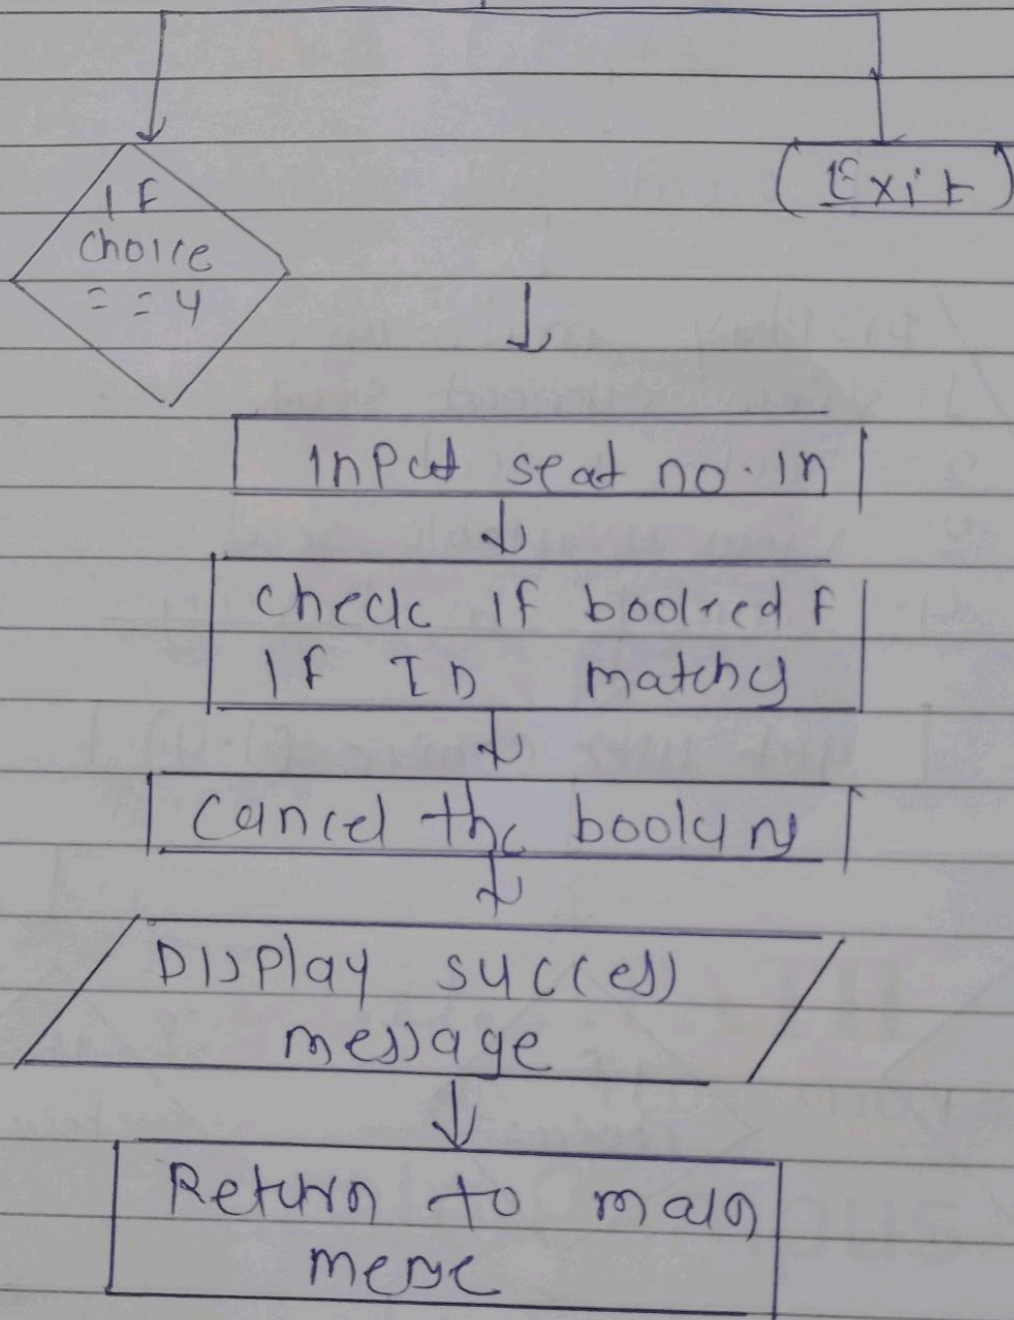 If
choice
= = 4
(Exit)
Input seat no. in
check if booked f
if ID matchy
Cancel the booking
Display success
message
Return to main
menu